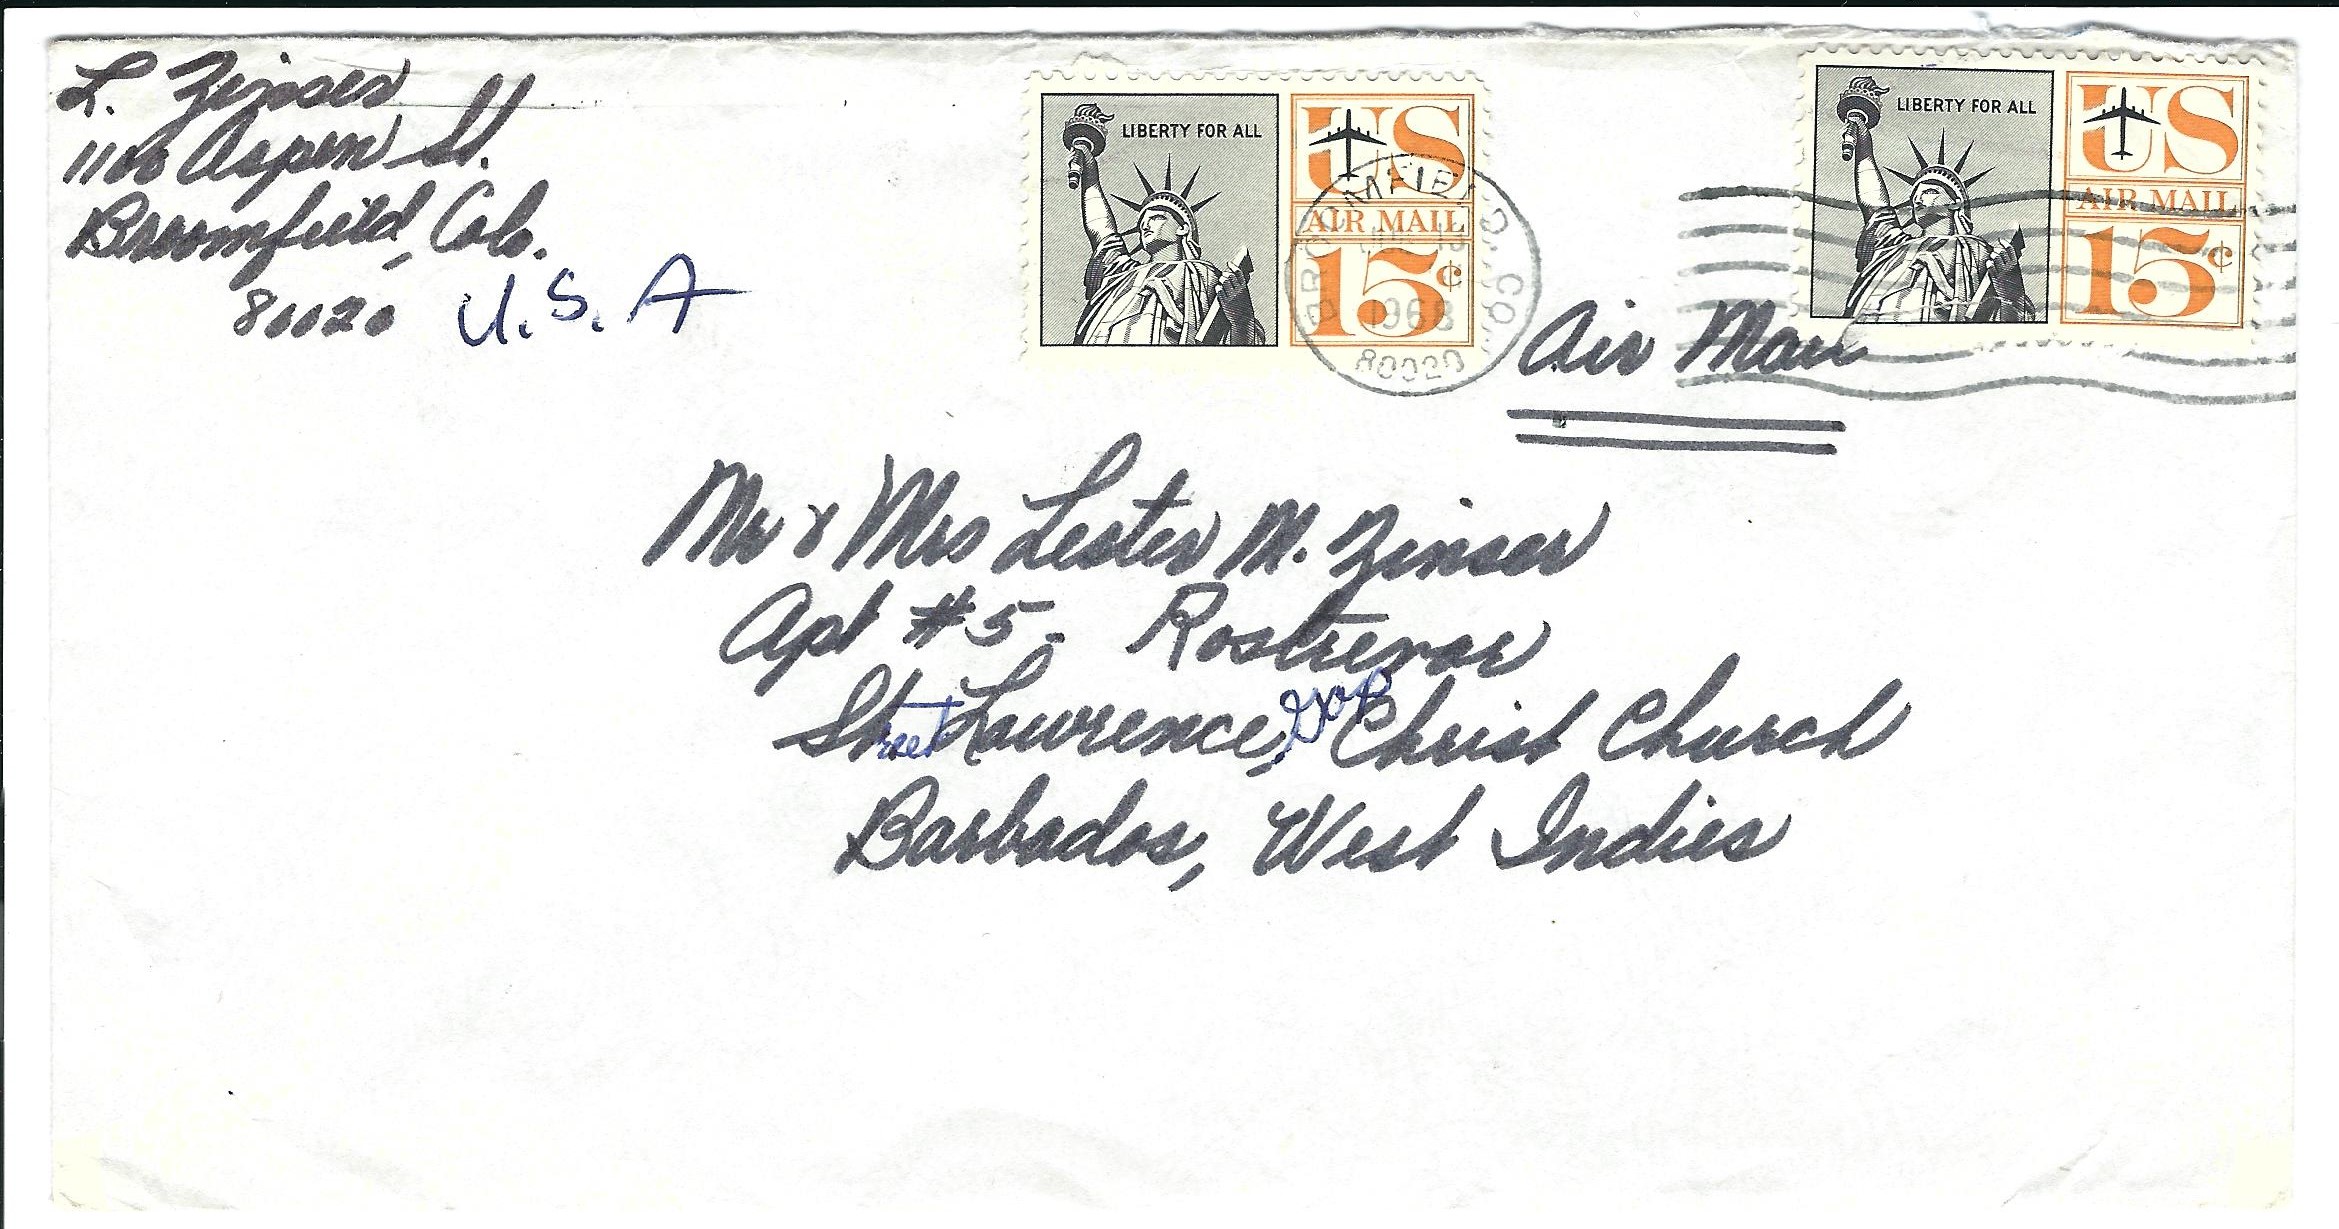 L. Zinser
1100 Aspen St.
Broomfield, Colo.
80020 U.S.A
LIBERTY FOR ALL
US
AIR MAIL
15¢
BROOMFIELD, CO.
1968
80020
LIBERTY FOR ALL
US
AIR MAIL
15¢
Air Mail
Mr & Mrs Lester M. Zinser
Apt #5. Rostrevor
Street Lawrence, Gap Christ Church
Barbados, West Indies